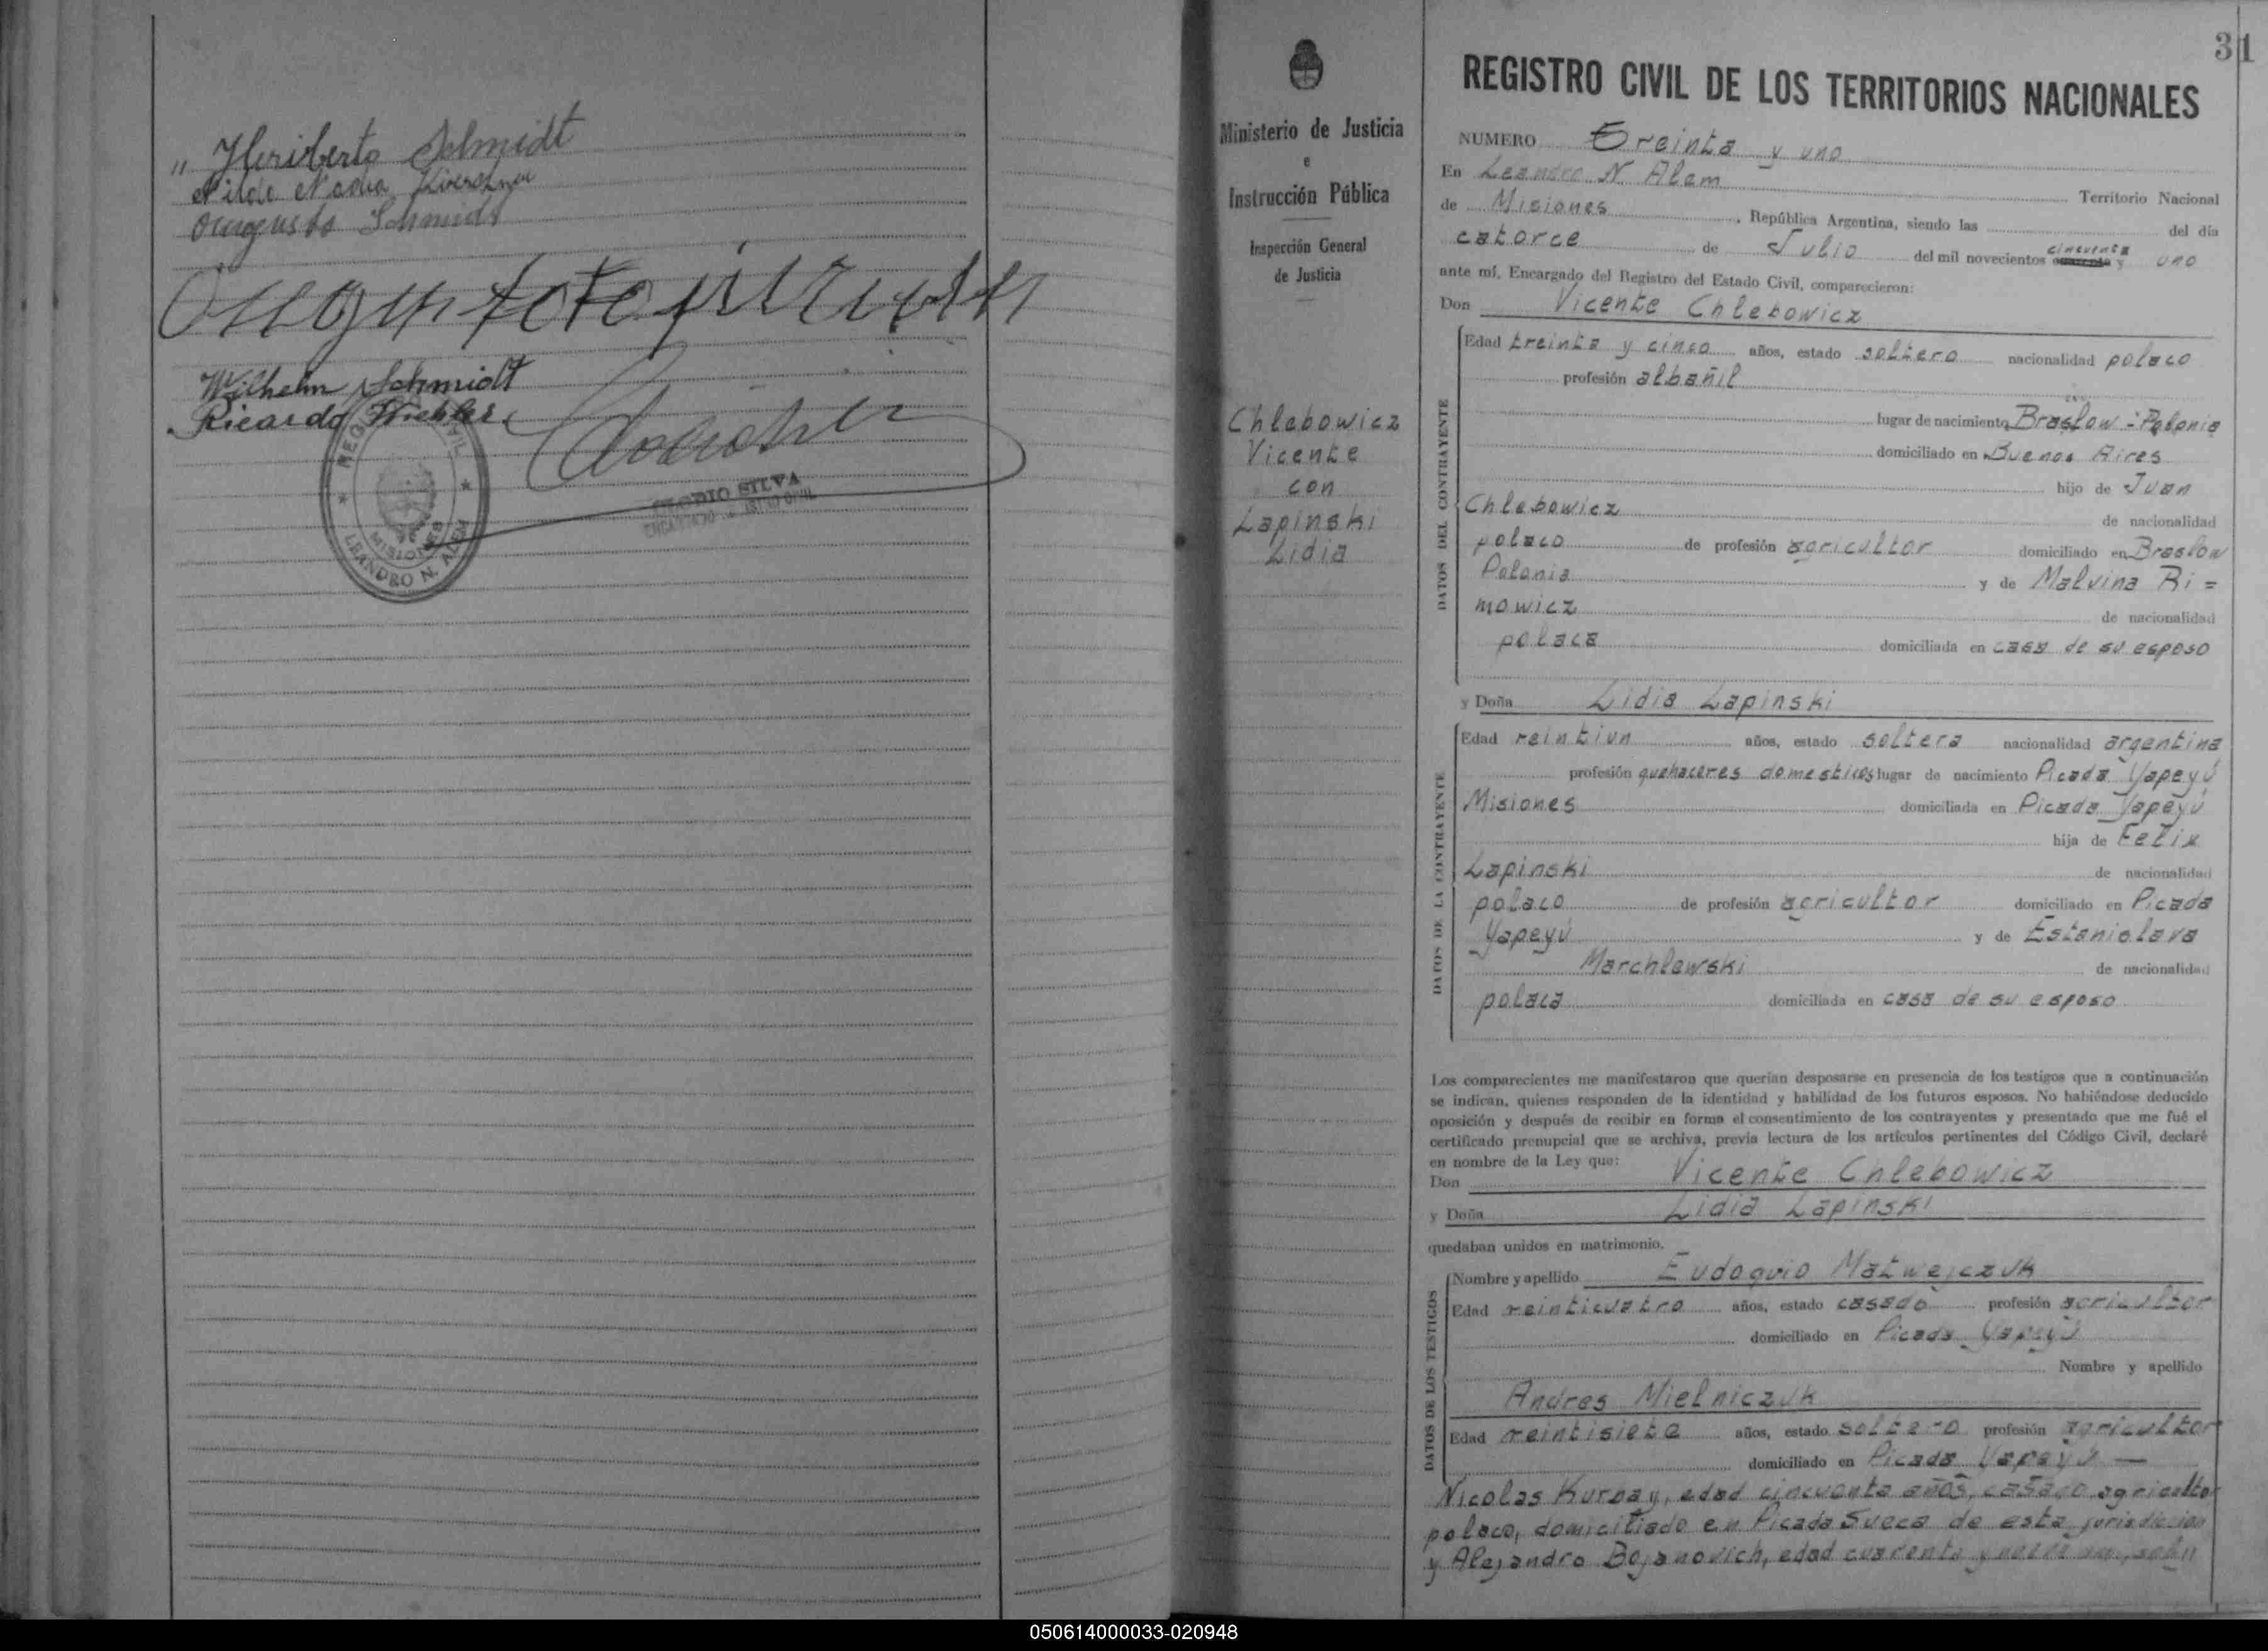 " Heriberto Schmidt
Nilda Nadia
Augusto Schmidt
Wilhelm Schmidt
Ricardo
LEANDRO N. ALEM
MISIONES
SILVA
Ministerio de Justicia
e
Instrucción Pública
Inspección General
de Justicia
Chlebowicz
Vicente
con
Lapinski
Lidia
31
REGISTRO CIVIL DE LOS TERRITORIOS NACIONALES
NUMERO Treinta y uno
En Leandro N Alem Territorio Nacional
de Misiones, República Argentina, siendo las del día
catorce de Julio del mil novecientos cincuenta y uno
ante mí, Encargado del Registro del Estado Civil, comparecieron:
Don Vicente Chlebowicz
DATOS DEL CONTRAYENTE
Edad treinta y cinco años, estado soltero nacionalidad polaco
profesión albañil
lugar de nacimiento Braslow - Polonia
domiciliado en Buenos Aires
hijo de Juan
Chlebowicz de nacionalidad
polaco de profesión agricultor domiciliado en Braslow
Polonia y de Malvina Ri =
mowicz de nacionalidad
polaca domiciliada en casa de su esposo
y Doña Lidia Lapinski
DATOS DE LA CONTRAYENTE
Edad veintiun años, estado soltera nacionalidad argentina
profesión quehaceres domesticos lugar de nacimiento Picada Yapeyú
Misiones domiciliada en Picada Yapeyú
hija de Felix
Lapinski de nacionalidad
polaco de profesión agricultor domiciliado en Picada
Yapeyú y de Estanislava
Marchlewski de nacionalidad
polaca domiciliada en casa de su esposo
Los comparecientes me manifestaron que querían desposarse en presencia de los testigos que a continuación
se indican, quienes responden de la identidad y habilidad de los futuros esposos. No habiéndose deducido
oposición y después de recibir en forma el consentimiento de los contrayentes y presentado que me fué el
certificado prenupcial que se archiva, previa lectura de los artículos pertinentes del Código Civil, declaré
en nombre de la Ley que:
Don Vicente Chlebowicz
y Doña Lidia Lapinski
quedaban unidos en matrimonio.
DATOS DE LOS TESTIGOS
Nombre y apellido Eudoquio Matwejczuk
Edad veinticuatro años, estado casado profesión agricultor
domiciliado en Picada Yapeyú
Nombre y apellido
Andres Mielniczuk
Edad veintisiete años, estado soltero profesión agricultor
domiciliado en Picada Yapeyú —
Nicolas Kurbay, edad cincuenta años, casado agricultor
polaco, domiciliado en Picada Sueca de esta jurisdiccion
y Alejandro Bojanovich, edad cuarenta y nueve
050614000033-020948